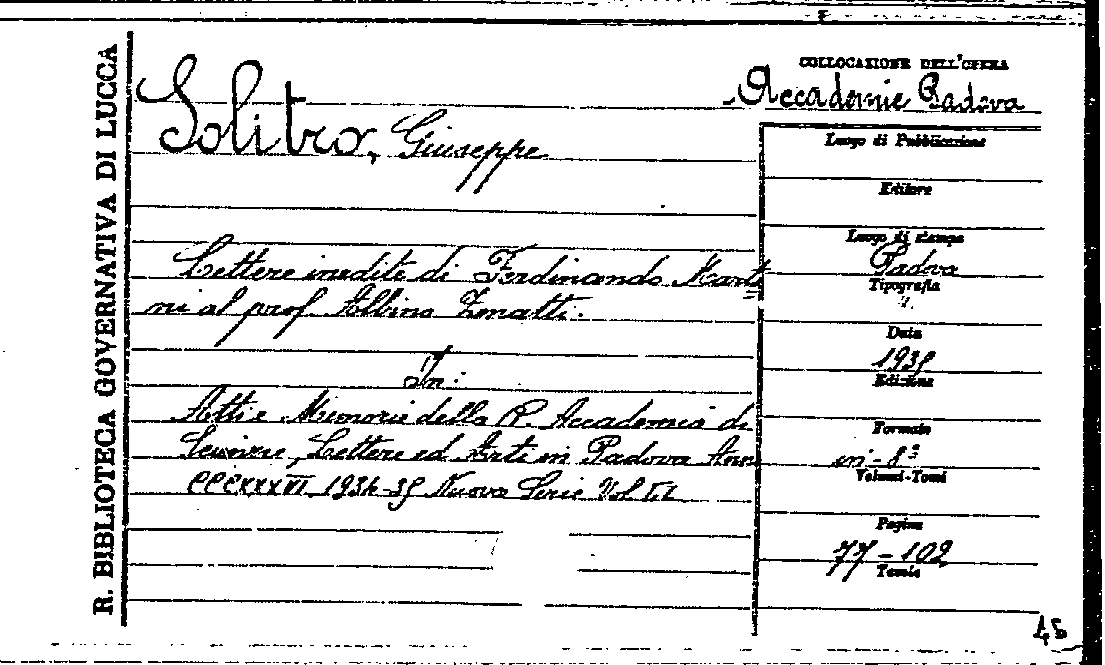 R. BIBLIOTECA GOVERNATIVA DI LUCCA
Solitro, Giuseppe
Lettere inedite di Ferdinando Marti=
ni al prof. Albino Zenatti.
In:
Atti e Memorie della R. Accademia di
Scienze, Lettere ed Arti in Padova Ann
CCCXXXVI 1934-35 Nuova Serie Vol LI
COLLOCAZIONE DELL'OPERA
Accademie Padova
Luogo di Pubblicazione
Editore
Luogo di stampa
Padova
Tipografia
Data
1935
Edizione
Formato
in-8°
Volumi-Tomi
Pagine
77-102
Tomio
45